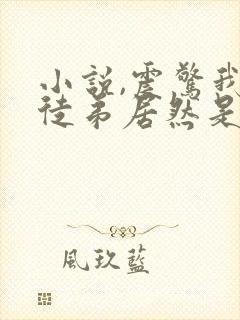 小説,震驚我
徒弟居然是
風玖藍